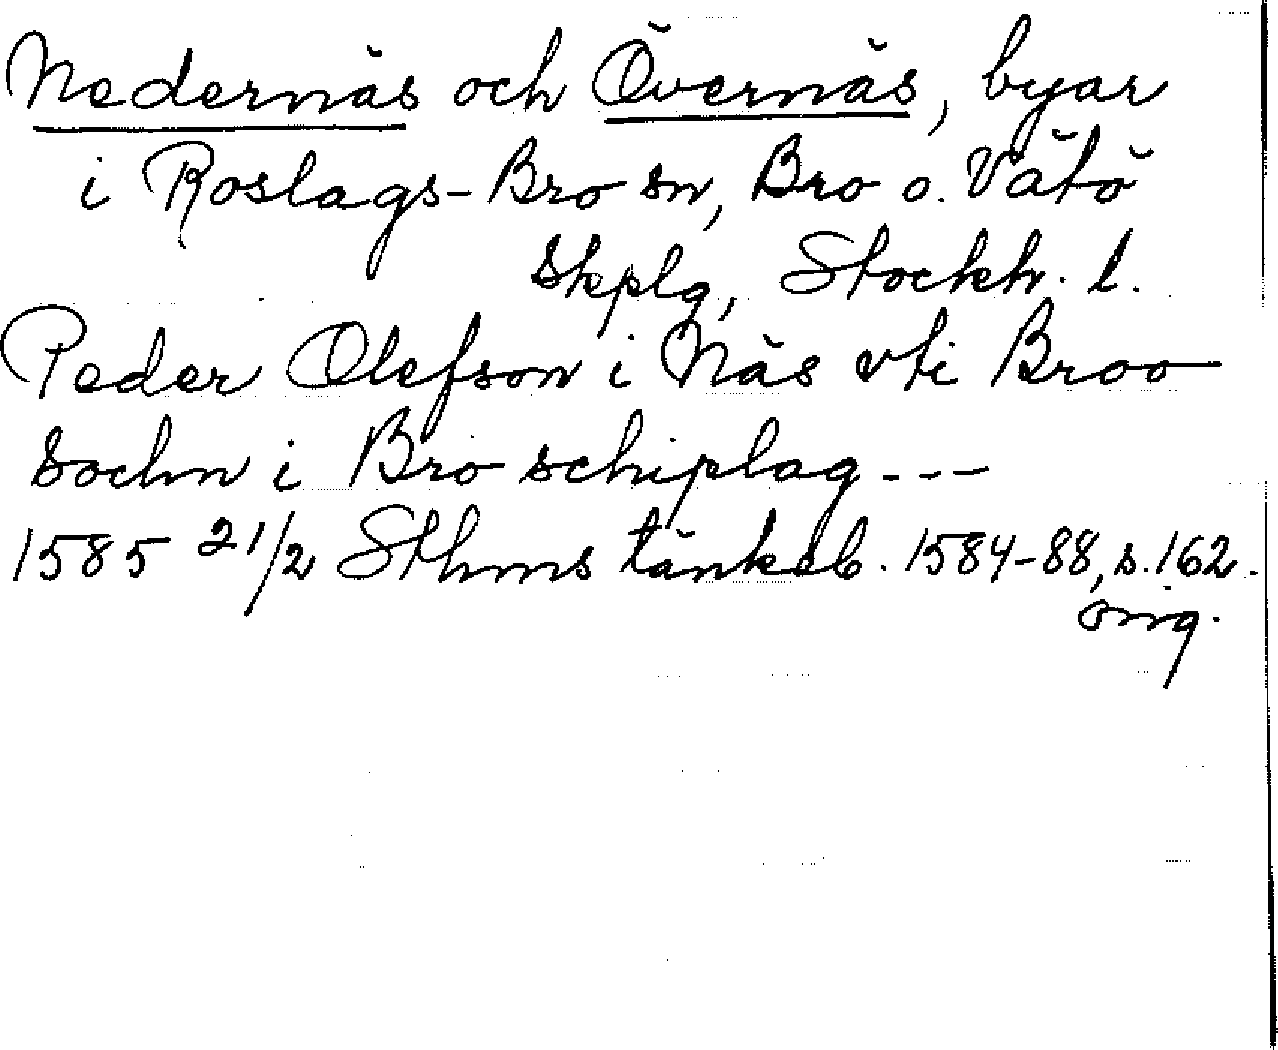 Nedernäs och Övernäs, byar
i Roslags-Bro sn, Bro o. Vätö
skplg, Stockh. l.
Peder Olefson i Näs vti Broo
sochn i Bro schiplag ---
1585 21/2 Sthms tänkeb. 1584-88, s. 162.
orig.